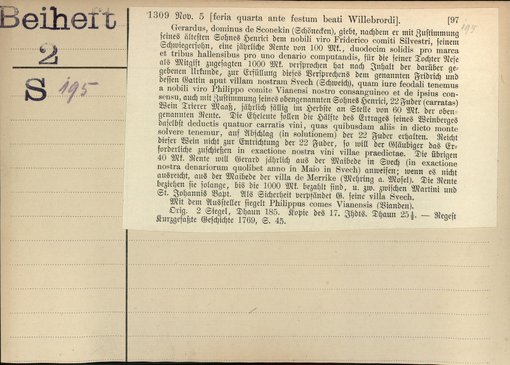 Beiheft
2
S
195
1309 Nov. 5 [feria quarta ante festum beati Willebrordi]. [97
195
Gerardus, dominus de Sconekin (Schönecken), giebt, nachdem er mit Zustimmung
seines ältesten Sohnes Henrici dem nobili viro Friderico comiti Silvestri, seinem
Schwiegersohn, eine jährliche Rente von 100 Mk., duodecim solidis pro marca
et tribus hallensibus pro uno denario computandis, für die seiner Tochter Nese
als Mitgift zugesagten 1000 Mk. versprochen hat nach Inhalt der darüber ge-
gebenen Urkunde, zur Erfüllung dieses Versprechens dem genannten Fridrich und
dessen Gattin aput villam nostram Svech (Schweich), quam iure feodali tenemus
a nobili viro Philippo comite Vianensi nostro consanguineo et de ipsius con-
sensu, auch mit Zustimmung seines obengenannten Sohnes Henrici, 22 Fuder (carratas)
Wein Trierer Maaß, jährlich fällig im Herbste an Stelle von 60 Mk. der oben-
genannten Rente. Die Eheleute sollen die Hälfte des Ertrages seines Weinberges
daselbst deductis quatuor carratis vini, quas quibusdam aliis in dicto monte
solvere tenemur, auf Abschlag (in solutionem) der 22 Fuder erhalten. Reicht
dieser Wein nicht zur Entrichtung der 22 Fuder, so will der Gläubiger das Er-
forderliche zuschießen in exactione nostra vini villae praedictae. Die übrigen
40 Mk. Rente will Gerard jährlich aus der Maibede in Svech (in exactione
nostra denariorum quolibet anno in Maio in Svech) anweisen; wenn es nicht
ausreicht, aus der Maibede der villa de Merrike (Mehring a. Mosel). Die Rente
beziehen sie solange, bis die 1000 Mk. bezahlt sind, u. zw. zwischen Martini und
St. Johannis Bapt. Als Sicherheit verpfändet G. seine villa Svech.
Mit dem Aussteller siegelt Philippus comes Vianensis (Vianden).
Orig. 2 Siegel, Dhaun 185. Kopie des 17. Jhdts. Dhaun 25½. — Regest
Kurzgefaßte Geschichte 1769, S. 45.